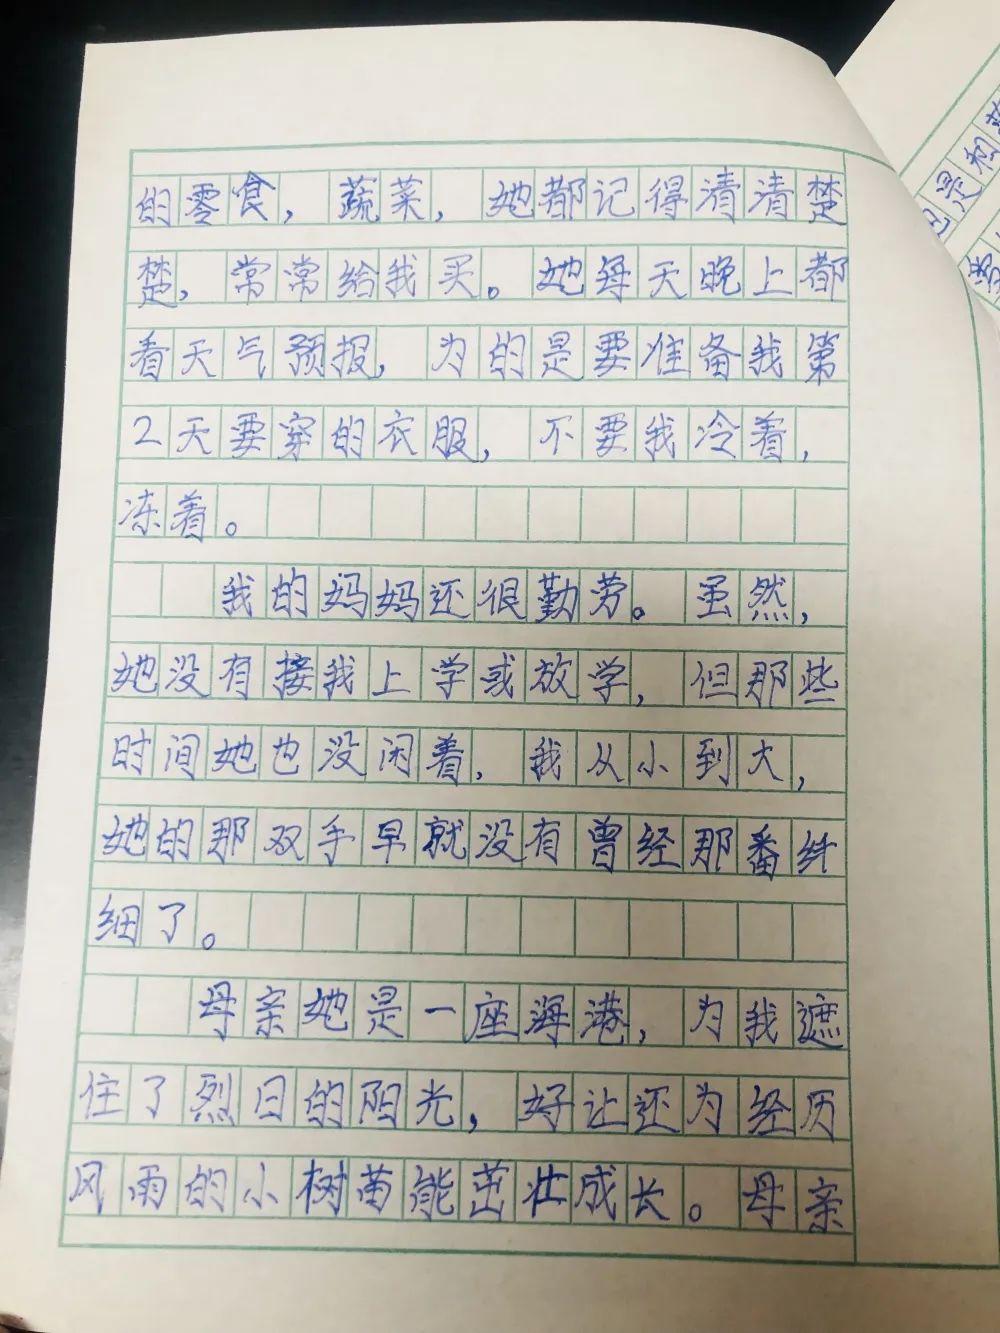 的零食，蔬菜，她都记得清清楚
楚，常常给我买。她每天晚上都
看天气预报，为的是要准备我第
2天要穿的衣服，不要我冷着，
冻着。
我的妈妈还很勤劳。虽然，
她没有接我上学或放学，但那些
时间她也没闲着，我从小到大，
她的那双手早就没有曾经那番纤
细了。
母亲她是一座海港，为我遮
住了烈日的阳光，好让还为经历
风雨的小树苗能茁壮成长。母亲